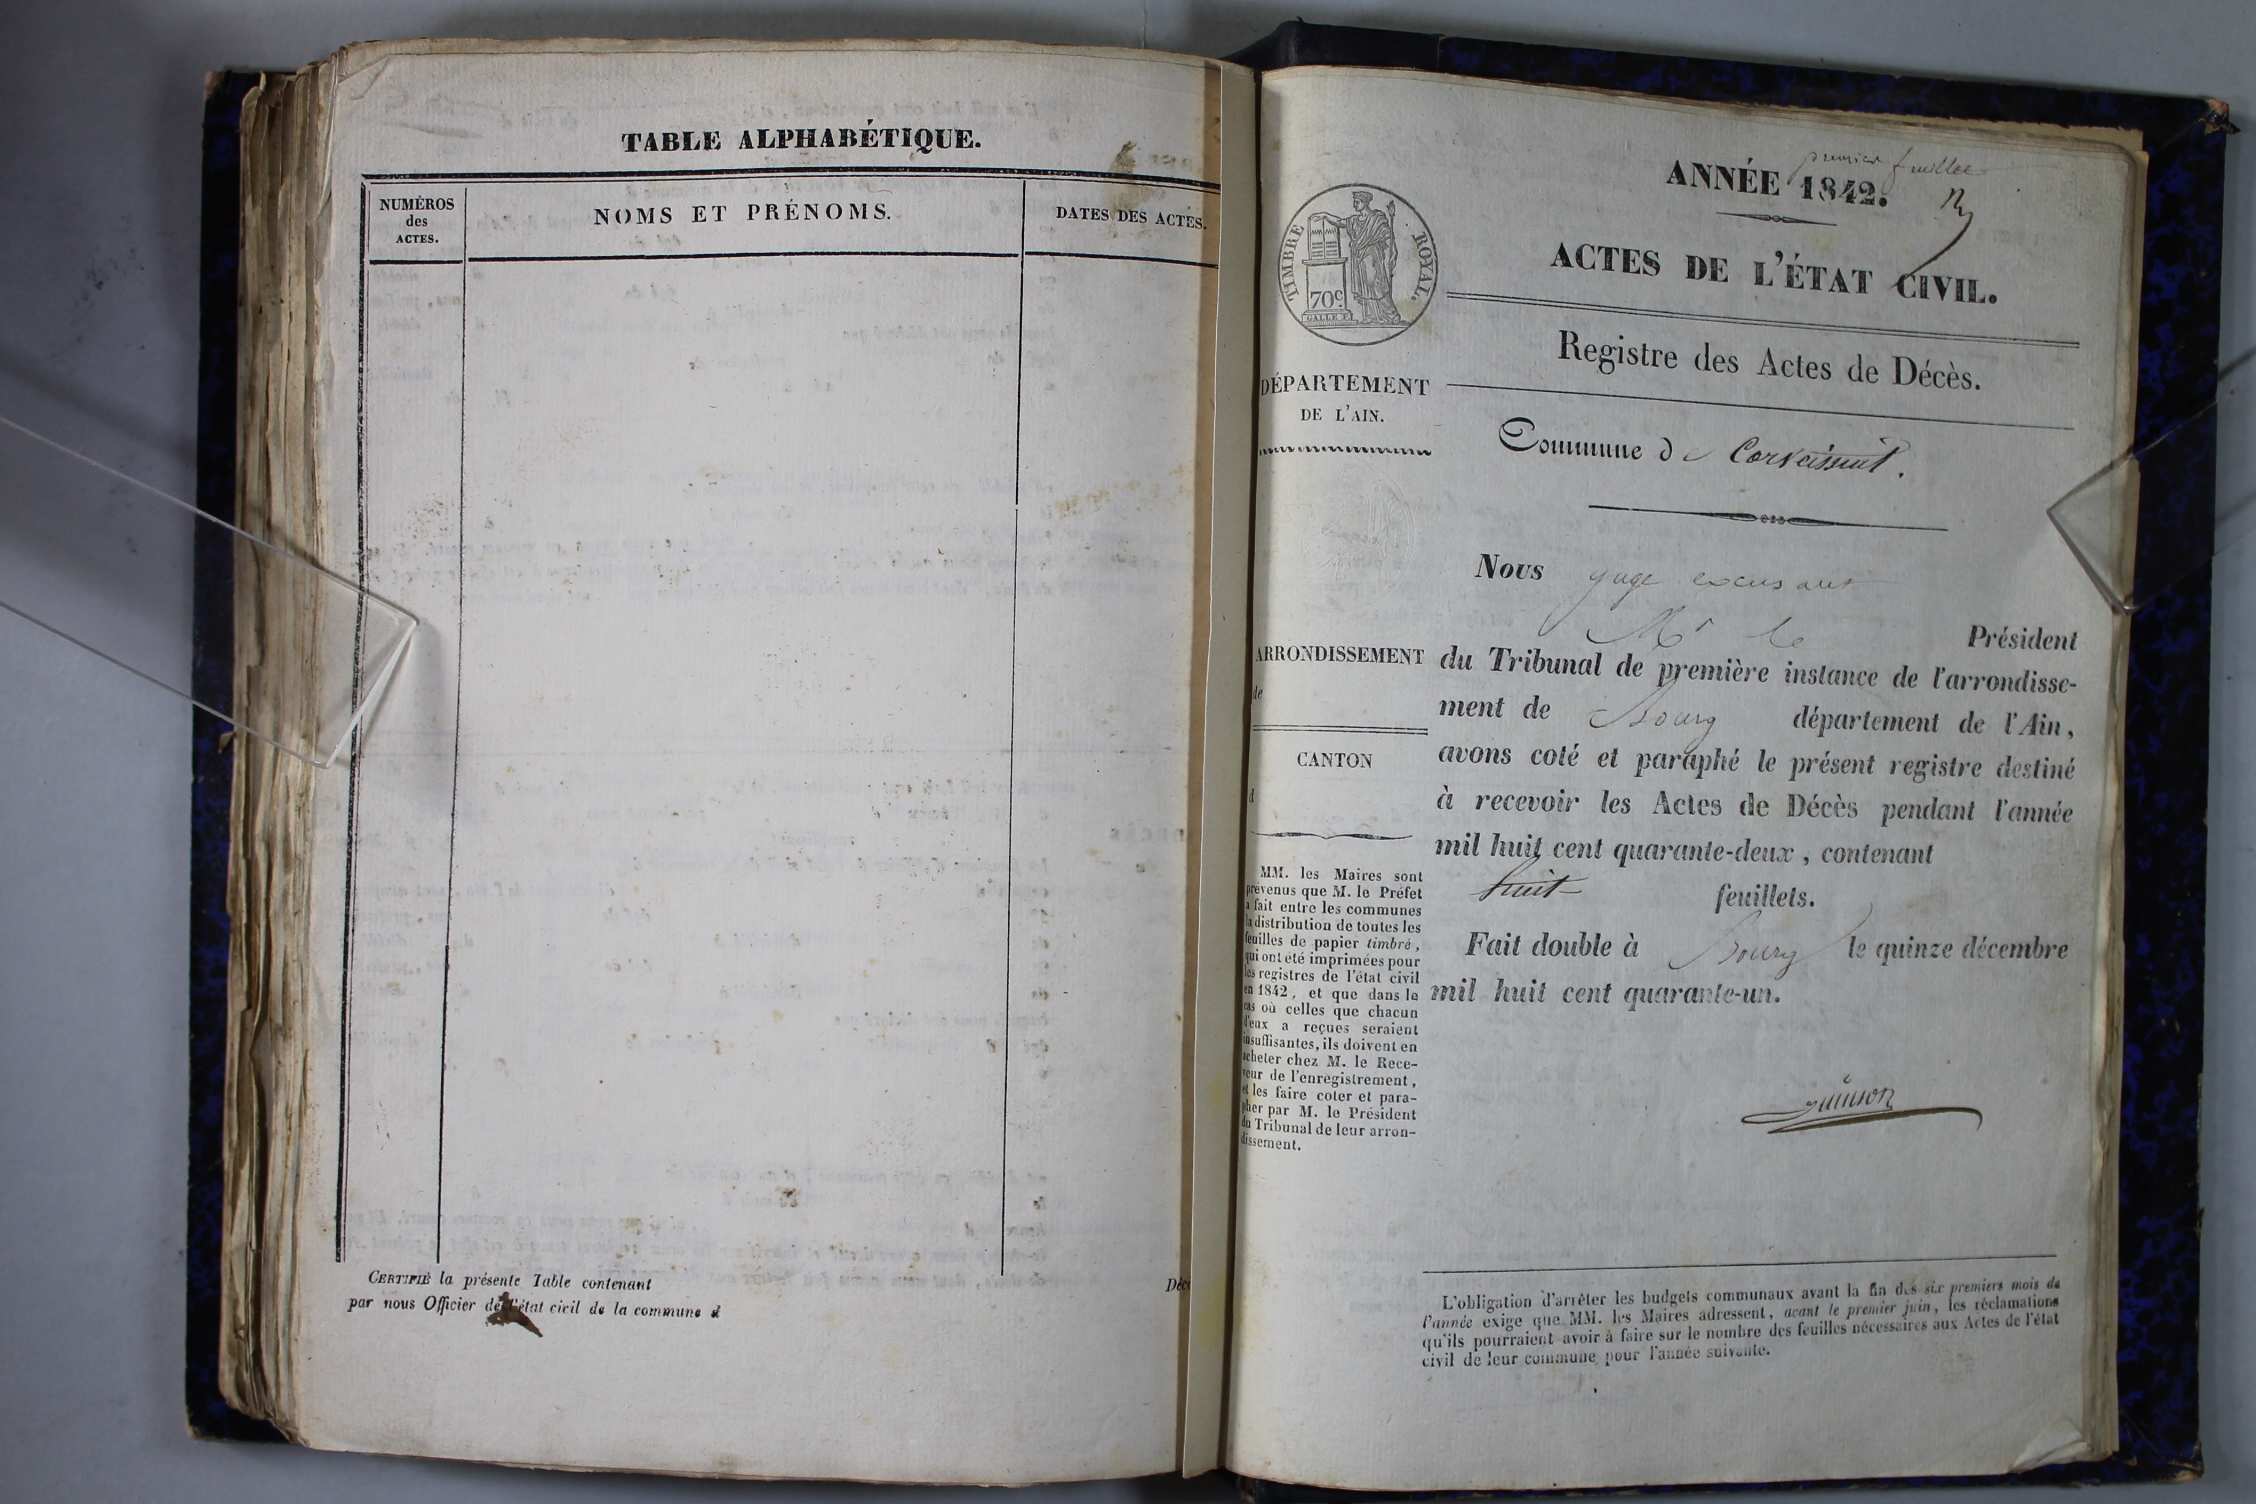 TABLE ALPHABÉTIQUE.
NUMÉROS
des
ACTES.
NOMS ET PRÉNOMS.
DATES DES ACTES.
CERTIFIÉ la présente Table contenant
Décè
par nous Officier de l'état civil de la commune d
premier feuillet
ANNÉE 1842.
ACTES DE L'ÉTAT CIVIL.
TIMBRE ROYAL.
70c.
Registre des Actes de Décès.
DÉPARTEMENT
DE L'AIN.
Commune de Corveissiat.
Nous juge excusant
Mr le Président
ARRONDISSEMENT
de
CANTON
d
du Tribunal de première instance de l'arrondisse-
ment de Bourg département de l'Ain,
avons coté et paraphé le présent registre destiné
à recevoir les Actes de Décès pendant l'année
mil huit cent quarante-deux, contenant
huit feuillets.
Fait double à Bourg le quinze décembre
mil huit cent quarante-un.
MM. les Maires sont
prévenus que M. le Préfet
a fait entre les communes
la distribution de toutes les
feuilles de papier timbré,
qui ont été imprimées pour
les registres de l'état civil
en 1842, et que dans le
cas où celles que chacun
d'eux a reçues seraient
insuffisantes, ils doivent en
acheter chez M. le Rece-
veur de l'enregistrement,
et les faire coter et para-
pher par M. le Président
du Tribunal de leur arron-
dissement.
L'obligation d'arrêter les budgets communaux avant la fin des six premiers mois de
l'année exige que MM. les Maires adressent, avant le premier juin, les réclamations
qu'ils pourraient avoir à faire sur le nombre des feuilles nécessaires aux Actes de l'état
civil de leur commune pour l'année suivante.